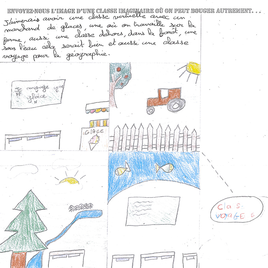 ENVOYEZ-NOUS L'IMAGE D'UNE CLASSE IMAGINAIRE OÙ ON PEUT BOUGER AUTREMENT. . .
J'aimerais avoir une classe avec un
marchand de glaces, une où on travaille sur la
ferme, aussi une classe dehors, dans la forêt, une
sous l'eau serait bien et aussi une classe
voyage pour la géographie.
GLACE
VOYAGE